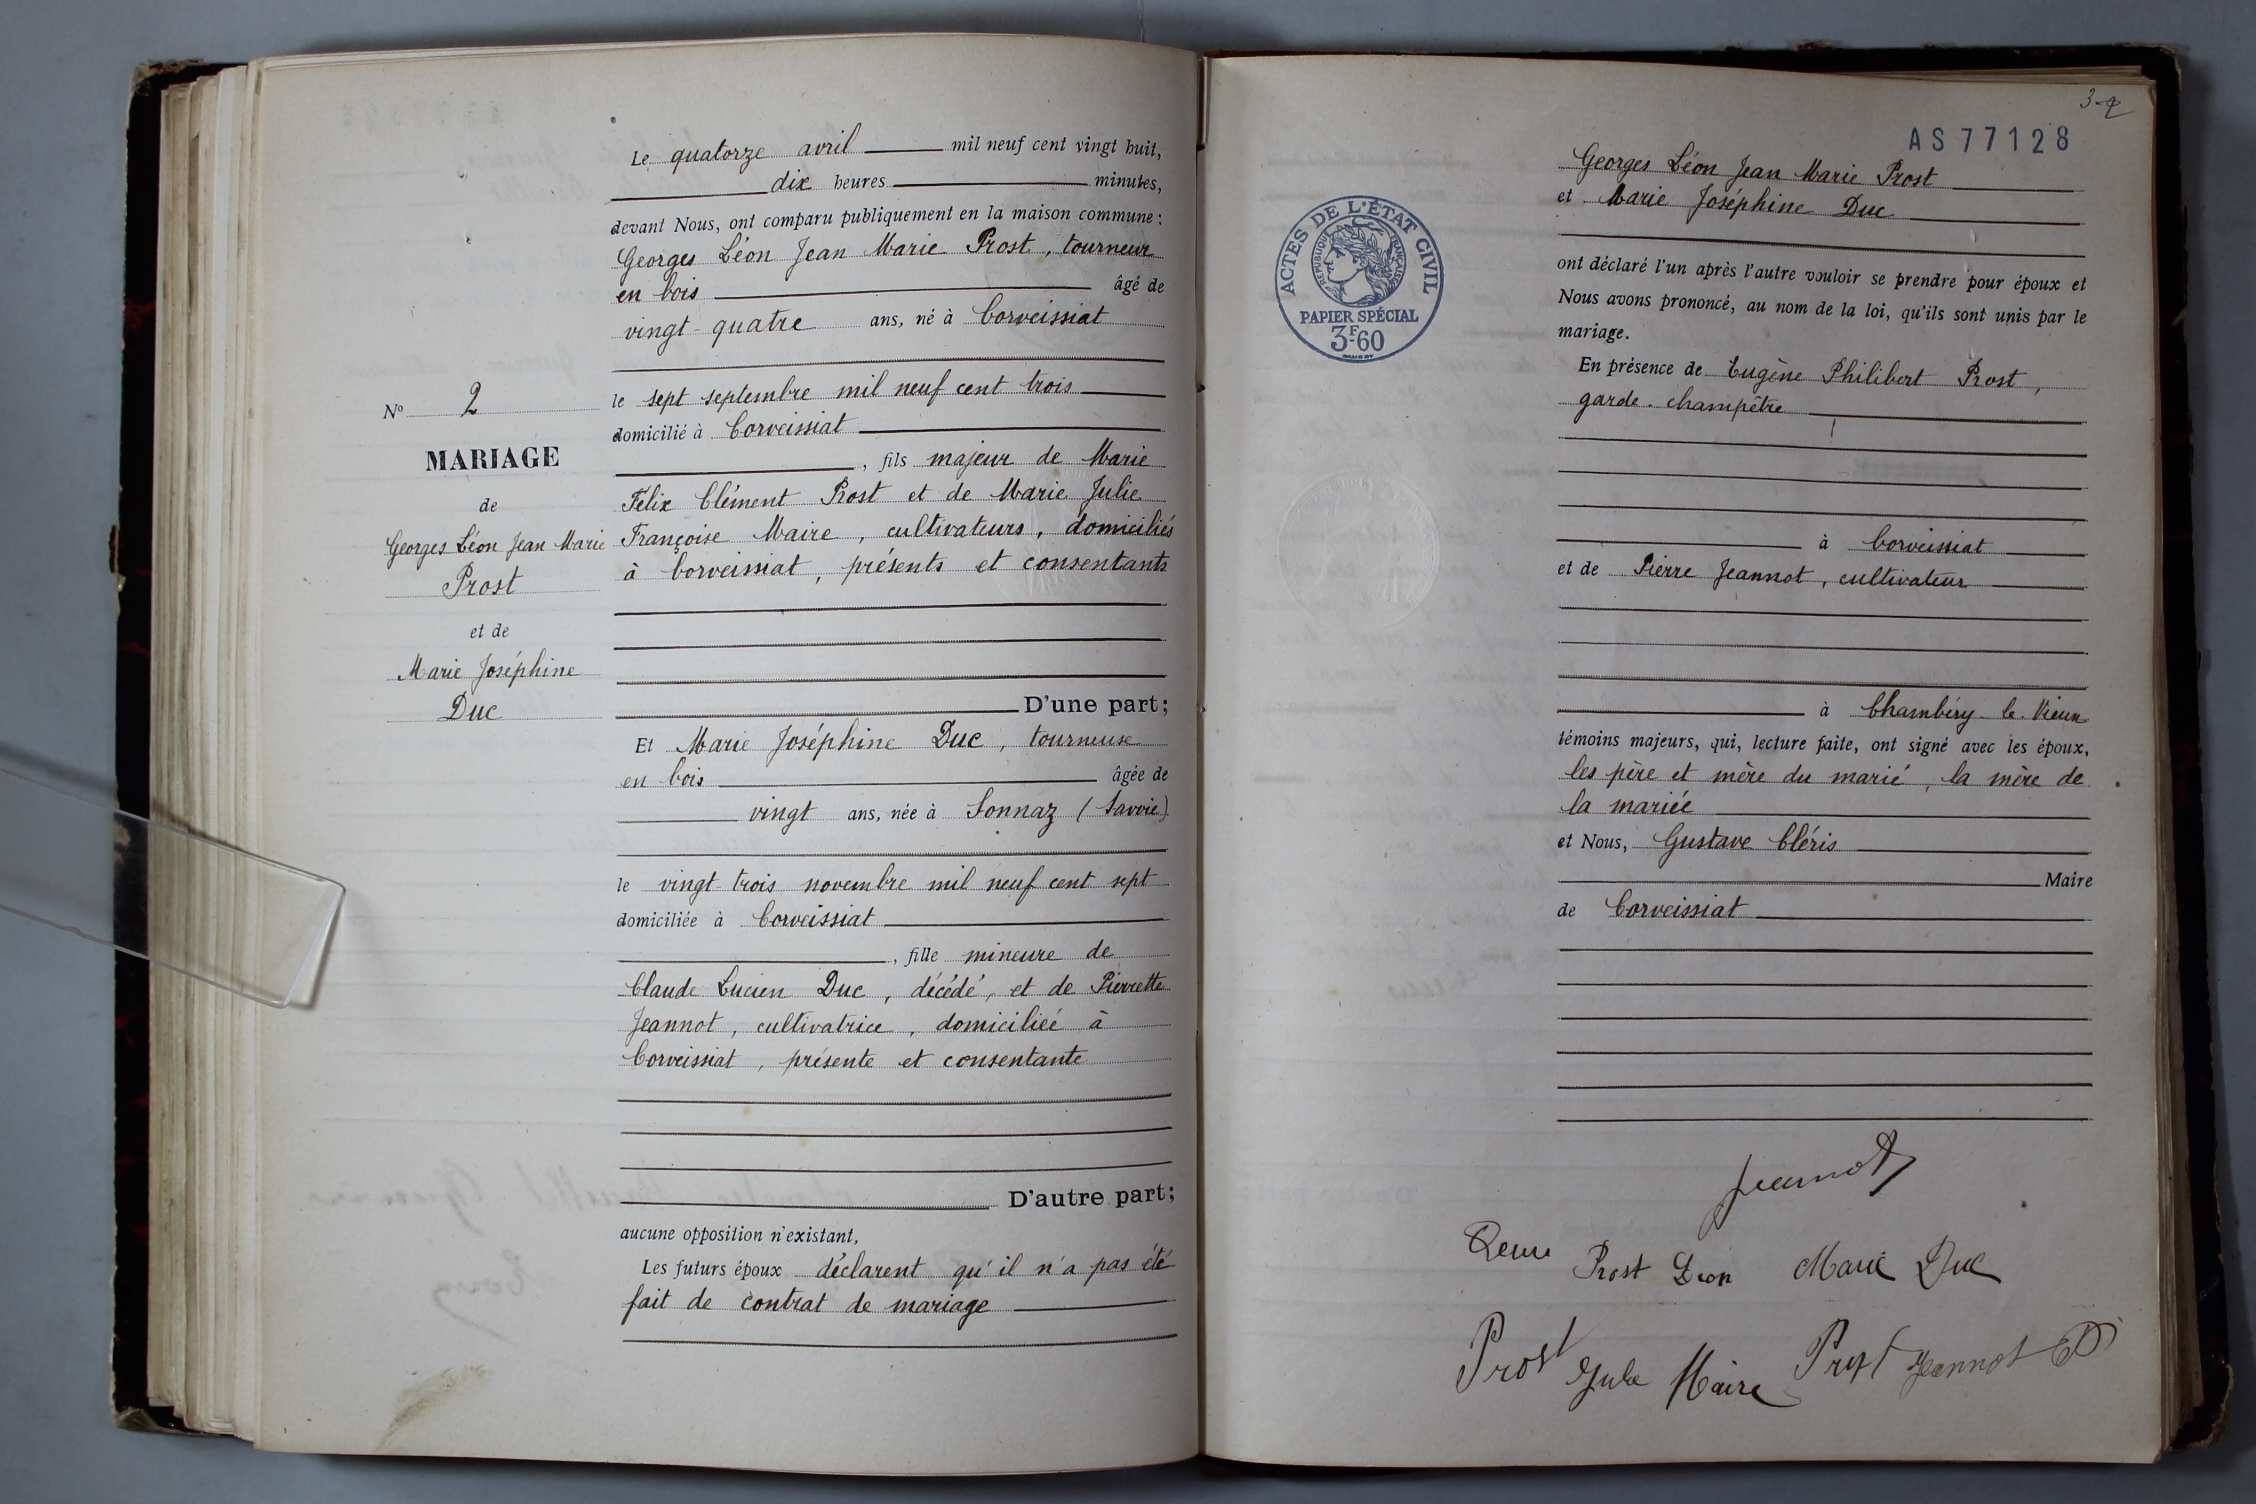 Le quatorze avril mil neuf cent vingt huit,
dix heures minutes,
devant Nous, ont comparu publiquement en la maison commune :
Georges Léon Jean Marie Prost, tourneur
en bois âgé de
vingt-quatre ans, né à Corveissiat
le sept septembre mil neuf cent trois
domicilié à Corveissiat
, fils majeur de Marie
Félix Clément Prost et de Marie Julie
Françoise Maire, cultivateurs, domiciliés
à Corveissiat, présents et consentants
D'une part;
Et Marie Joséphine Duc, tourneuse
en bois âgée de
vingt ans, née à Sonnaz (Savoie)
le vingt-trois novembre mil neuf cent sept
domiciliée à Corveissiat
, fille mineure de
Claude Lucien Duc, décédé, et de Pierrette
Jeannot, cultivatrice, domiciliée à
Corveissiat, présente et consentante
D'autre part;
aucune opposition n'existant,
Les futurs époux déclarent qu'il n'a pas été
fait de contrat de mariage
No 2
MARIAGE
de
Georges Léon Jean Marie
Prost
et de
Marie Joséphine
Duc
AS77128
ACTES DE L'ÉTAT CIVIL
RÉPUBLIQUE FRANÇAISE
PAPIER SPÉCIAL
3F.60
Georges Léon Jean Marie Prost
et Marie Joséphine Duc
ont déclaré l'un après l'autre vouloir se prendre pour époux et
Nous avons prononcé, au nom de la loi, qu'ils sont unis par le
mariage.
En présence de Eugène Philibert Prost,
garde-champêtre
à Corveissiat
et de Pierre Jeannot, cultivateur
à Chambéry-le-Vieux
témoins majeurs, qui, lecture faite, ont signé avec les époux,
les père et mère du marié, la mère de
la mariée
et Nous, Gustave Cléris
Maire
de Corveissiat
Jeannot
Prost Léon Marie Duc
Prost Julie Maire Prost Jeannot